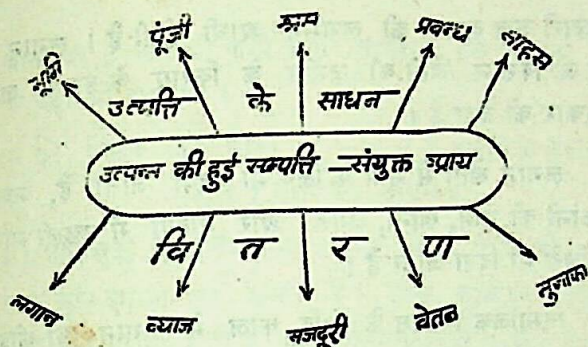 भूमि पूंजी श्रम प्रबन्ध साहस
उत्पत्ति के साधन
उत्पन्न की हुई सम्पत्ति — संयुक्त आय
वि त र ण
लगान ब्याज मजदूरी वेतन